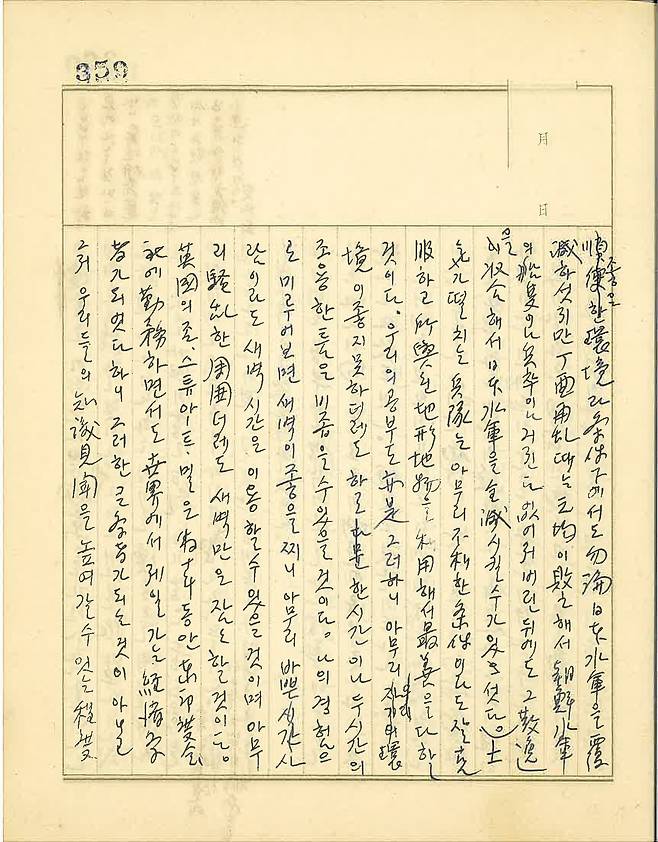 359
月
日
順便한 環境과 좋은 条件下에서도 勿論 日本水軍을 覆
滅하섯지만 丁酉再乱때는 元均이 敗亡해서 朝鮮水軍
의 이나 兵卒이나 거진 다 없어저버린 뒤에도 그 散逸
을 收合해서 日本水軍을 全滅시킬수가 있으섯다. 士
氣가 떨치는 兵隊는 아무리 不利한 条件이라도 잘 克
服하고 所與된 地形地物을 利用해서 最善을 다 한
것이다. 우리의 공부도 亦是 그러하니 아무리 우리 자기의 環
境이 좋지 못하더레도 하로 한시간이나 두시간의
조용한 틈을 비좁을 수 있을 것이다. 나의 경험으
로 미루어보면 새벽이 좋을찌니 아무리 바쁜 시간 사
람이라도 새벽 시간은 이용할 수 있을 것이며 아무
리 騷乱한 周囲더레도 새벽만은 잘 할 것이다.
英國의 존. 스튜아-트. 밀은 동안 東印度会
社에 勤務하면서도 世界에서 제일가는 経済学
者가 되엿다 하니 그러한 큰 学者가 되는 것이 아닐
 우리들의 知識見聞을 높여갈 수 잇는 程度